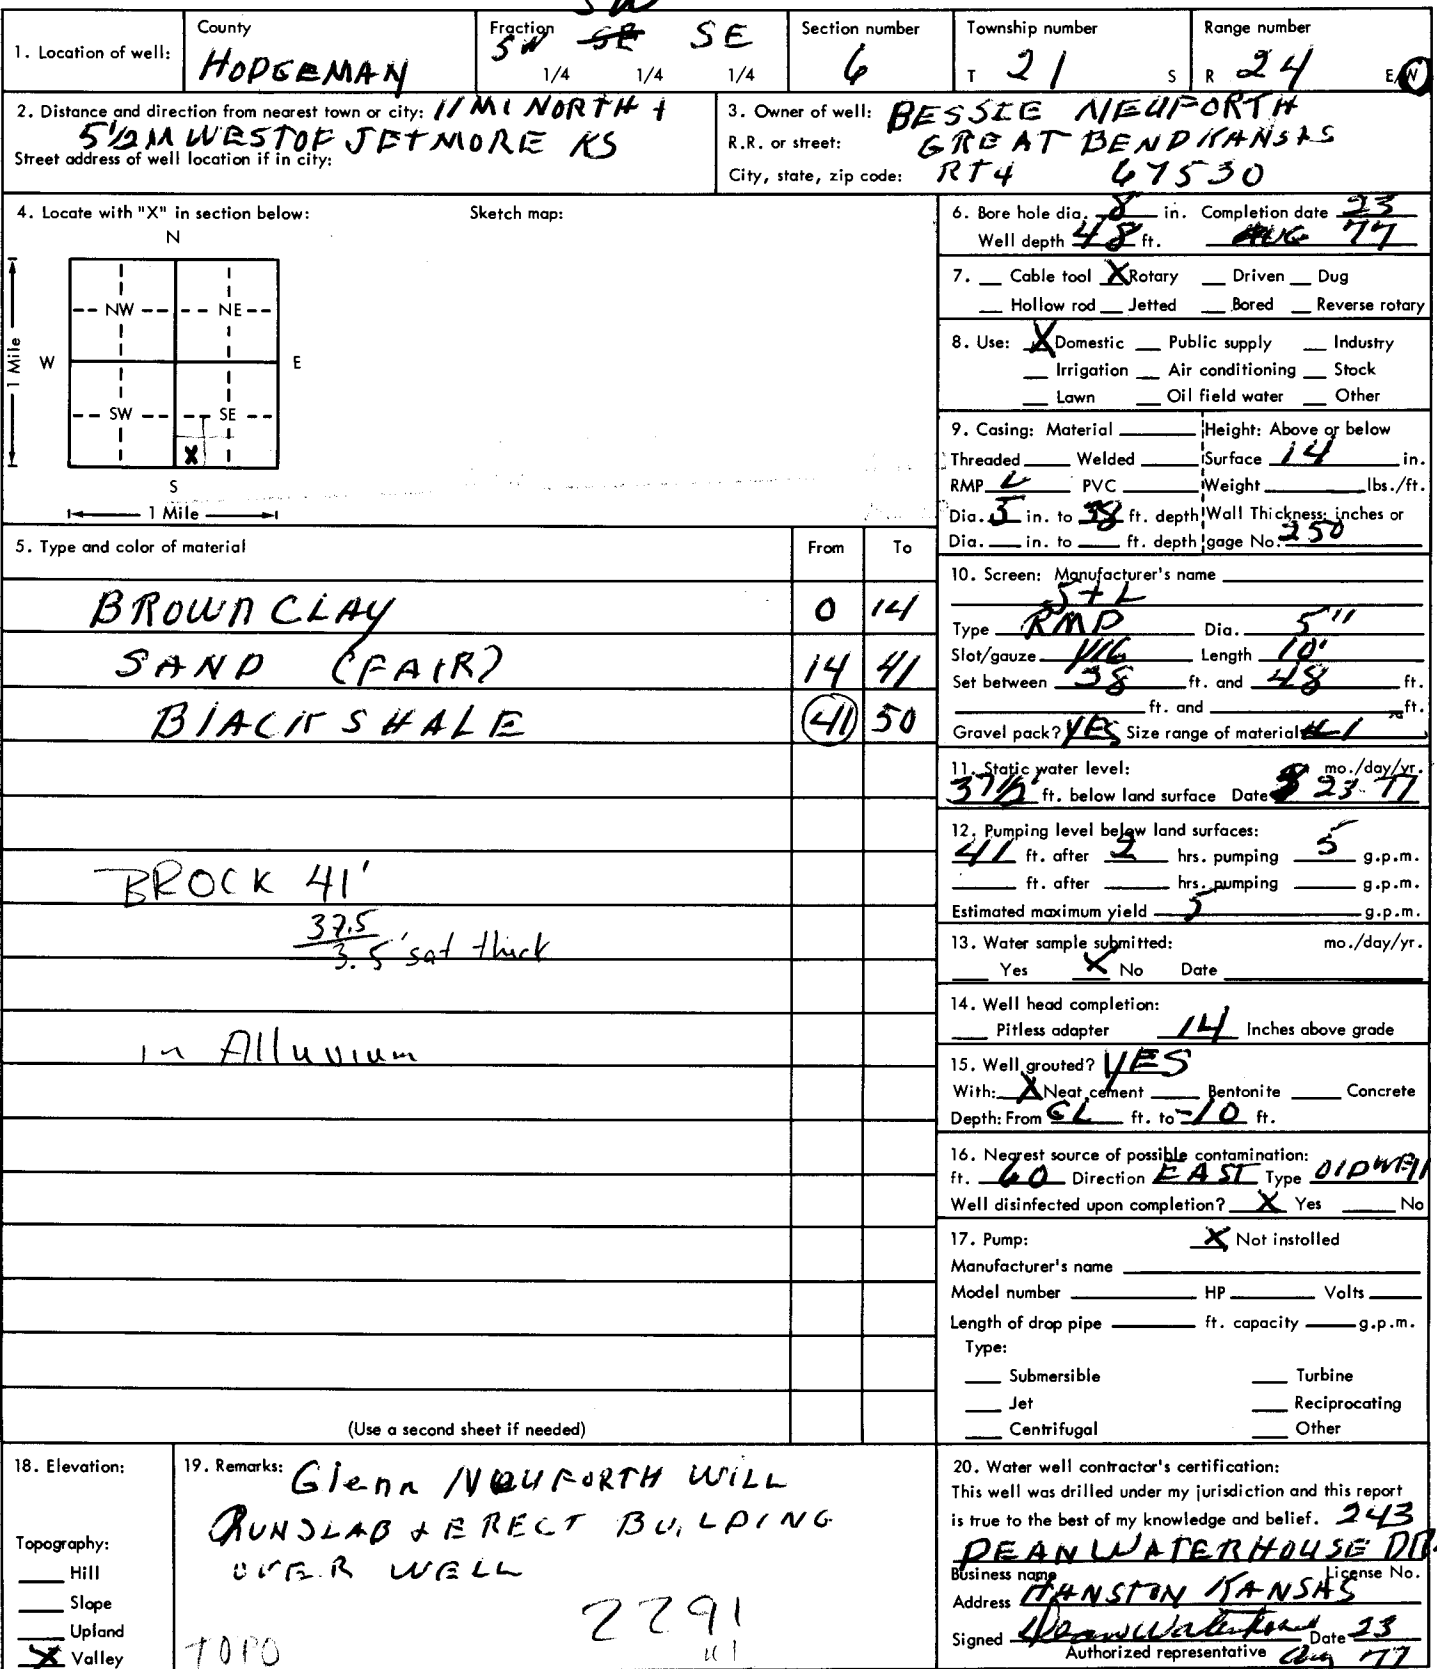 SW
County Fraction Section number Township number Range number
1. Location of well: HODGEMAN SW SE SE 6 T 21 S R 24 E/W
1/4 1/4 1/4
2. Distance and direction from nearest town or city: 11 MI NORTH +
5 1/2 M WEST OF JETMORE KS
Street address of well location if in city:
3. Owner of well: BESSIE NEUFORTH
R.R. or street: GREAT BEND KANSAS
City, state, zip code: RT 4 67530
4. Locate with "X" in section below: Sketch map:
N
NW NE
W E
1 Mile
SW SE
X
S
1 Mile
5. Type and color of material From To
BROWN CLAY 0 14
SAND (FAIR) 14 41
BLACK SHALE 41 50
BROCK 41'
37.5
3.5' sat thick
in Alluvium
(Use a second sheet if needed)
6. Bore hole dia. 8 in. Completion date 23
Well depth 48 ft. AUG 77
7. Cable tool X Rotary Driven Dug
Hollow rod Jetted Bored Reverse rotary
8. Use: X Domestic Public supply Industry
Irrigation Air conditioning Stock
Lawn Oil field water Other
9. Casing: Material Height: Above or below
Threaded Welded Surface 14 in.
RMP ✓ PVC Weight lbs./ft.
Dia. 5 in. to 38 ft. depth Wall Thickness: inches or
Dia. in. to ft. depth gage No. 250
10. Screen: Manufacturer's name
S+L
Type RMP Dia. 5"
Slot/gauze 1/16 Length 10'
Set between 38 ft. and 48 ft.
ft. and ft.
Gravel pack? YES Size range of material #1
11. Static water level: mo./day/yr.
37 1/2' ft. below land surface Date 8 23 77
12. Pumping level below land surfaces:
41 ft. after 2 hrs. pumping 5 g.p.m.
ft. after hrs. pumping g.p.m.
Estimated maximum yield 5 g.p.m.
13. Water sample submitted: mo./day/yr.
Yes X No Date
14. Well head completion:
Pitless adapter 14 Inches above grade
15. Well grouted? YES
With: X Neat cement Bentonite Concrete
Depth: From GL ft. to -10 ft.
16. Nearest source of possible contamination:
ft. 60 Direction EAST Type OLD WELL
Well disinfected upon completion? X Yes No
17. Pump: X Not installed
Manufacturer's name
Model number HP Volts
Length of drop pipe ft. capacity g.p.m.
Type:
Submersible Turbine
Jet Reciprocating
Centrifugal Other
18. Elevation:
Topography:
Hill
Slope
Upland
X Valley
19. Remarks: Glenn NEUFORTH WILL
RUN SLAB & ERECT BUILDING
OVER WELL
2291
TOPO
20. Water well contractor's certification:
This well was drilled under my jurisdiction and this report
is true to the best of my knowledge and belief. 243
DEAN WATERHOUSE DR.
Business name License No.
Address HANSTON KANSAS
Signed Dean Waterhouse Date 23
Authorized representative Aug 77